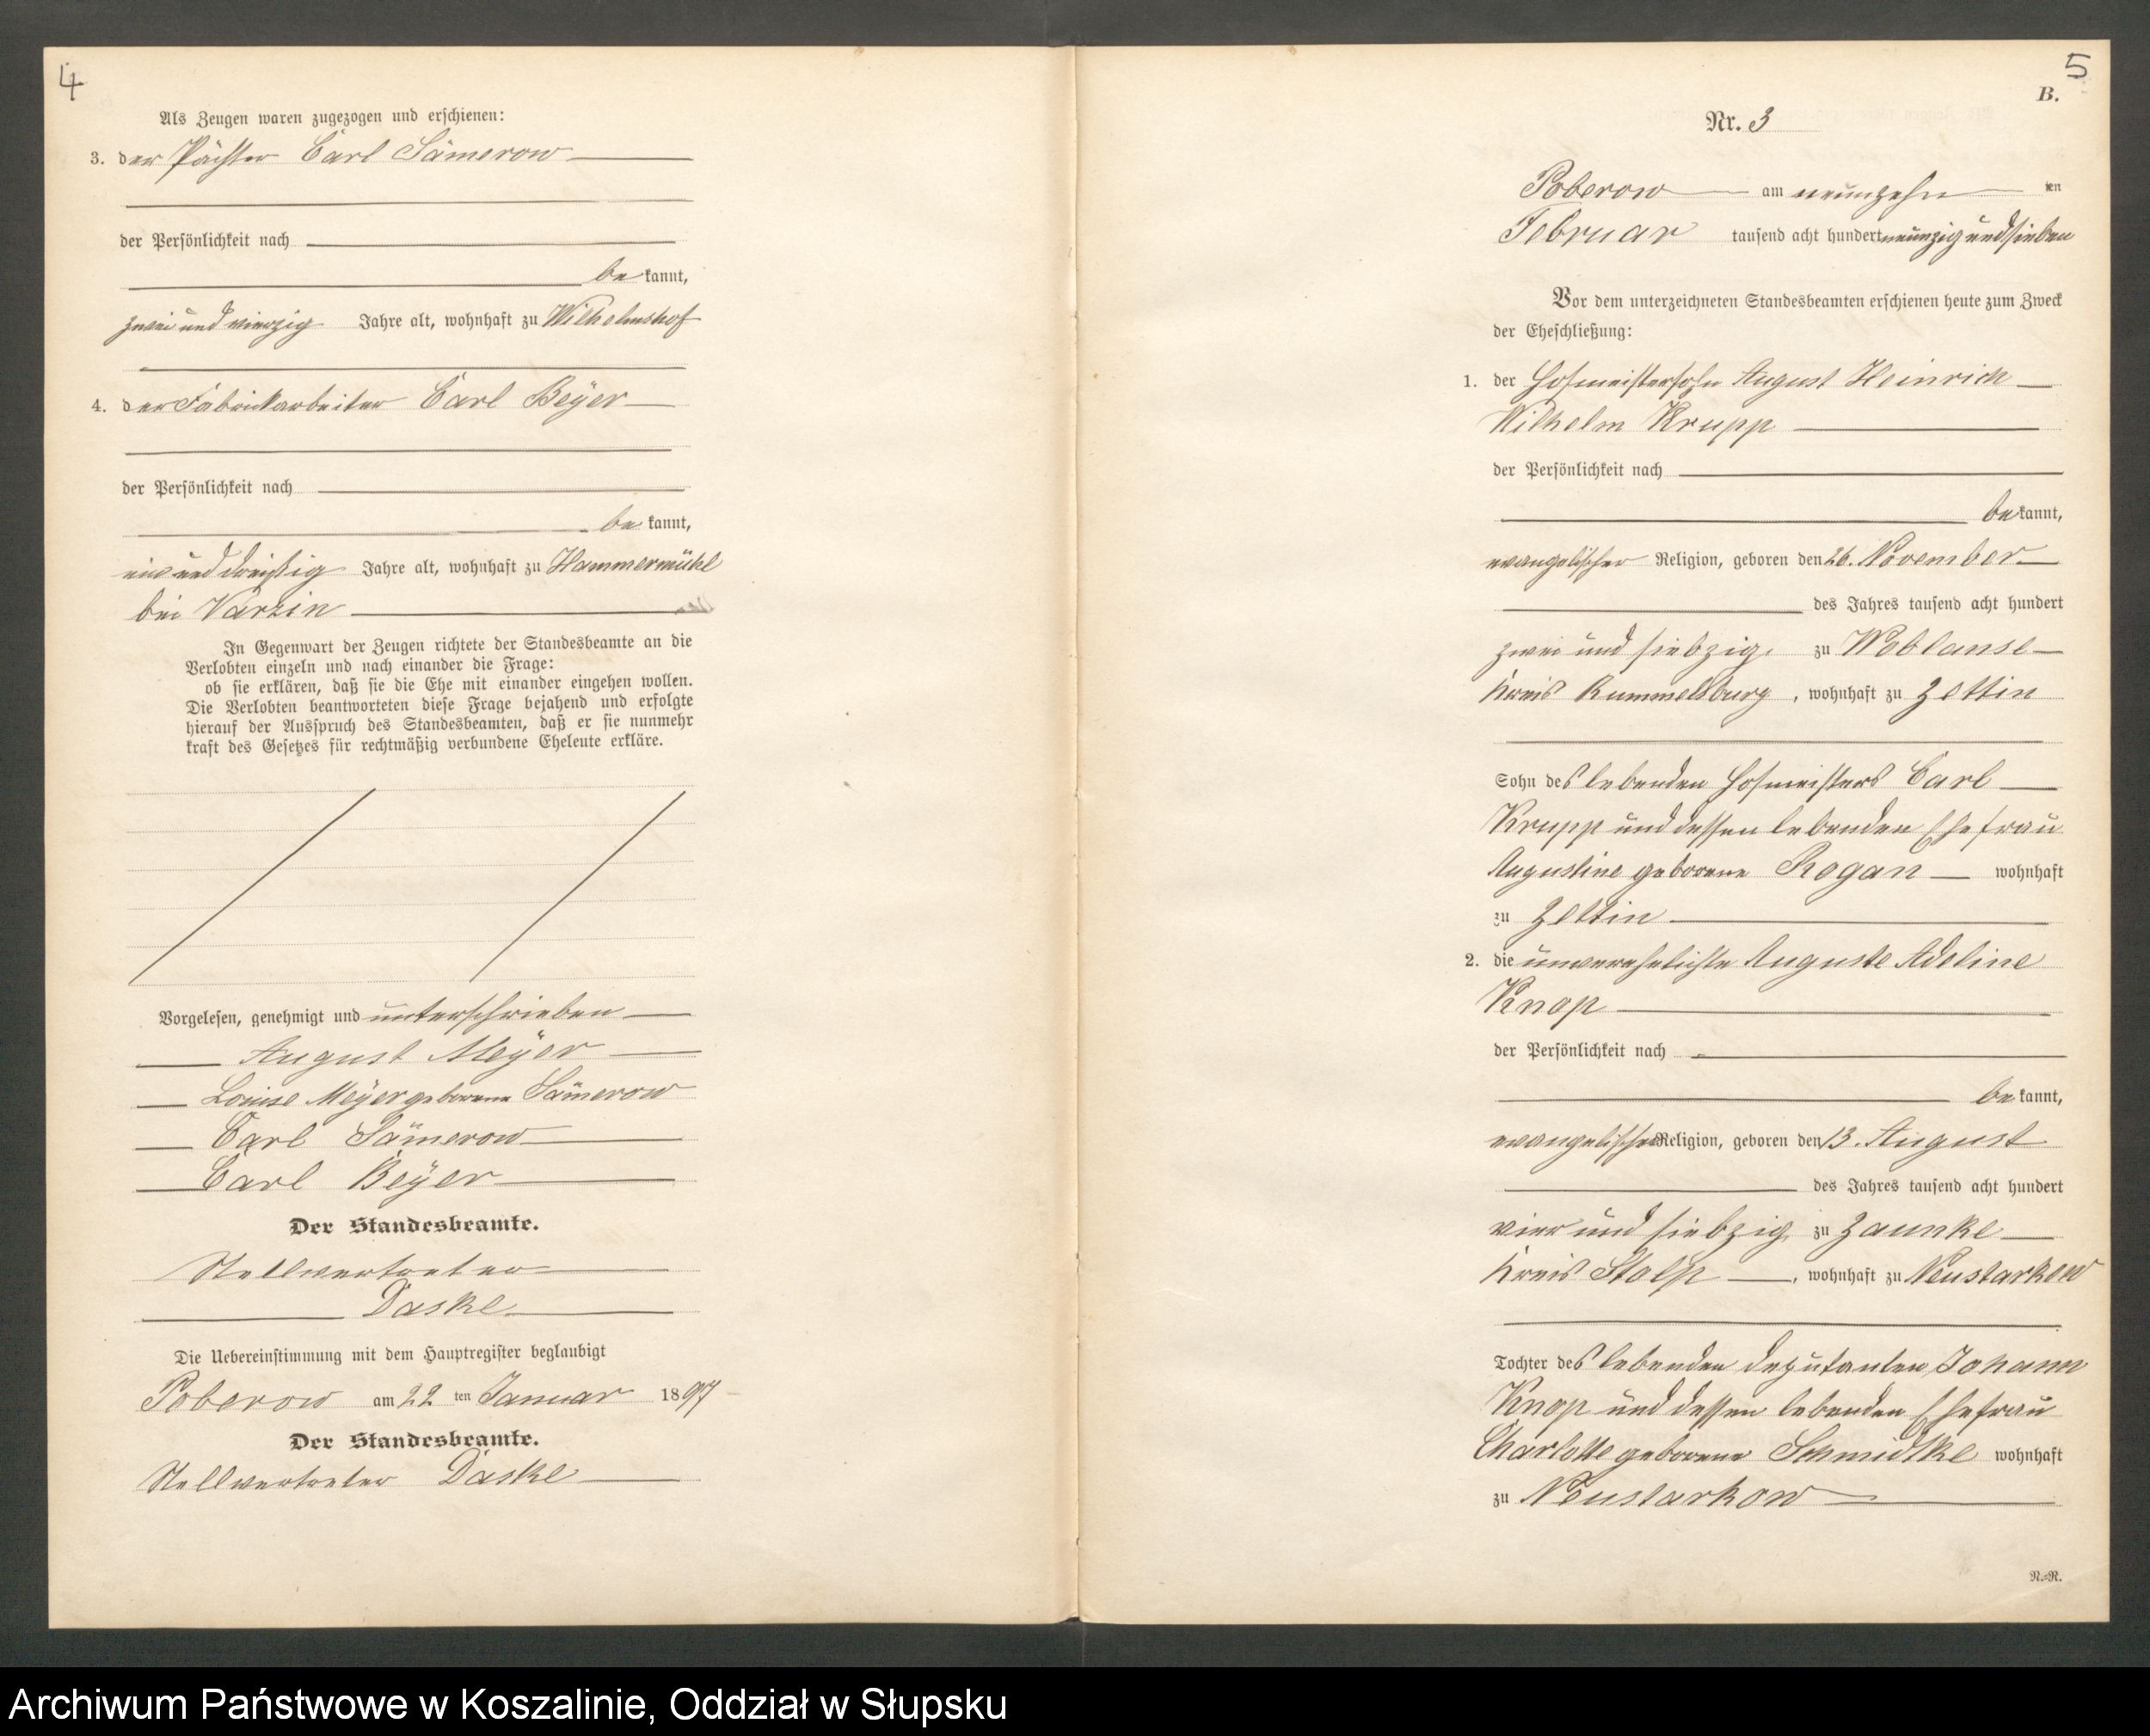 4
Als Zeugen waren zugezogen und erschienen:
3. der Pächter Carl Sämerow
der Persönlichkeit nach
be kannt,
zwei und vierzig Jahre alt, wohnhaft zu Wilhelmshof
4. der Fabrikarbeiter Carl Beÿer
der Persönlichkeit nach
be kannt,
ein und dreißig Jahre alt, wohnhaft zu Hammermühl
bei Varzin
In Gegenwart der Zeugen richtete der Standesbeamte an die
Verlobten einzeln und nach einander die Frage:
ob sie erklären, daß sie die Ehe mit einander eingehen wollen.
Die Verlobten beantworteten diese Frage bejahend und erfolgte
hierauf der Ausspruch des Standesbeamten, daß er sie nunmehr
kraft des Gesetzes für rechtmäßig verbundene Eheleute erkläre.
Vorgelesen, genehmigt und unterschrieben
August Meÿer
Louise Meÿer geborene Sämerow
Carl Sämerow
Carl Beÿer
Der Standesbeamte.
Stellvertreter
Daske
Die Uebereinstimmung mit dem Hauptregister beglaubigt
Poberow am 22 ten Januar 1897
Der Standesbeamte.
Stellvertreter Daske
5
B.
Nr. 3
Poberow am neunzehn ten
Februar tausend acht hundert neunzig und sieben
Vor dem unterzeichneten Standesbeamten erschienen heute zum Zweck
der Eheschließung:
1. der Hofmeistersohn August Heinrich
Wilhelm Krupp
der Persönlichkeit nach
be kannt,
evangelischer Religion, geboren den 26. November
des Jahres tausend acht hundert
zwei und siebzig zu Woblanse
Kreis Rummelsburg, wohnhaft zu Zettin
Sohn des lebenden Hofmeisters Carl
Krupp und dessen lebenden Ehefrau
Augustine geborene Rogan wohnhaft
zu Zettin
2. die unverehelichte Auguste Adeline
Knop
der Persönlichkeit nach
be kannt,
evangelischer Religion, geboren den 13. August
des Jahres tausend acht hundert
vier und siebzig zu Zaunke
Kreis Stolp, wohnhaft zu Neustarkow
Tochter des lebenden Deputanten Johann
Knop und dessen lebenden Ehefrau
Charlotte geborene Schmidtke wohnhaft
zu Neustarkow
N.=R.
Archiwum Państwowe w Koszalinie, Oddział w Słupsku